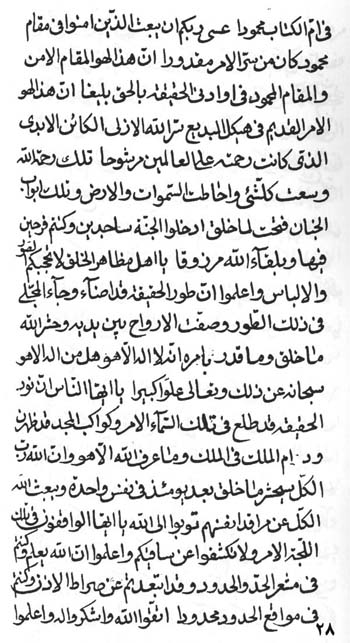 فی امّ الکتاب محمودا عسی ربکم ان یبعث الذین امنوا فی مقام
محمود کان من سرّ الامر مقدورا انّ هذا لهو المقام الامن
والمقام المحمود فی اوادنی الحقیقه بالحق بلیغا انّ هذا لهو
الامر القدیم فی هیکل البدیع سرّ الله الازلی الکائن الابدی
الذی کانت رحمته علی العالمین مرشوحا تلک رحمة الله
وسعت کلّشئ واحاطت السّموات والارض وتلک ابواب
الجنان فتحت لما خلق ادخلوا الجنّة ساجدین وکنتم فرحین
فیها وبلقآء الله مرزوقا یا اهل مظاهر الخلق لا یحجبکم
والالباس واعلموا انّ طور الحقیقة قد اضآء وجآء المجلّی
فی ذلک الطّور وصفّت الارواح بین یدیه وحشر الله
ما خلق وما قدر بامره انّه لا اله الّا هو هل من اله الّا هو
سبحانه عن ذلک وتعالی علوّا کبیرا یا ایّها النّاس انّ نور
الحقیقه قد طلع فی تلک السّمآء الامر وکواکب المجد قد ظهرن
ودام الملک فی الملک وما عرف الله الّا هو وانّ الله ربّ
الکل سیحشر ما خلق بعد یومئذ فی نفس واحدة ویبعث الله
الکلّ عن مراقد انفسهم توبوا الی الله یا ایّها الواقفون فی تلک
اللّجة الامر ولا تکشفوا عن ساقیکم واعلموا انّ الله یعلم وکنتم
فی مشعر الحدّ والحدود وقد ابتعدتم عن صراط الاذن وکنتم
فی مواقع الحدود محدودا اتّقوا الله واشکروا له واعلموا
۲۸